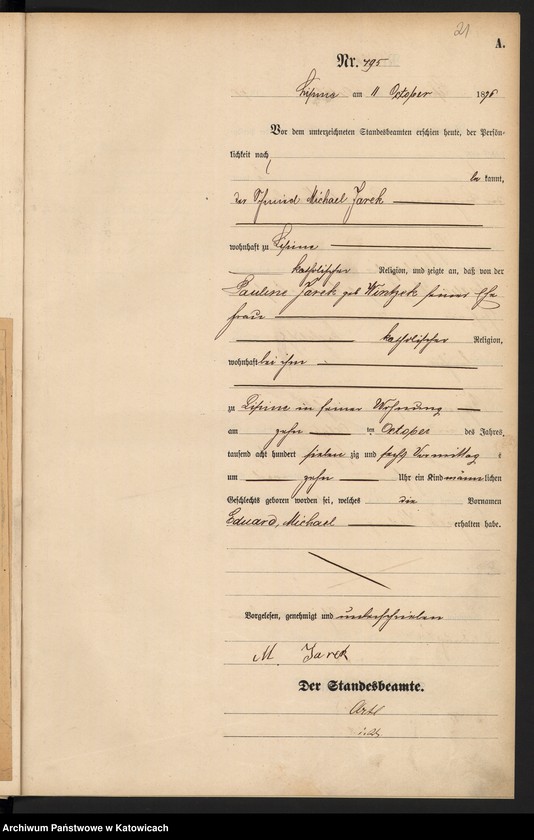 21
A.
Nr. 795
Lipine am 11 October 1876
Vor dem unterzeichneten Standesbeamten erschien heute, der Persön-
lichkeit nach
be kannt,
der Schmied Michael Jarek
wohnhaft zu Lipine
katholischer Religion, und zeigte an, daß von der
Pauline Jarek geb Wintzek seiner Ehe
frau
katholischer Religion,
wohnhaft bei ihm
zu Lipine in seiner Wohnung
am zehn ten October des Jahres
tausend acht hundert sieben zig und sechs Vormittag s
um zehn Uhr ein Kind männlichen
Geschlechts geboren worden sei, welches die Vornamen
Eduard, Michael erhalten habe.
Vorgelesen, genehmigt und unterschrieben
M. Jarek
Der Standesbeamte.
Archiwum Państwowe w Katowicach